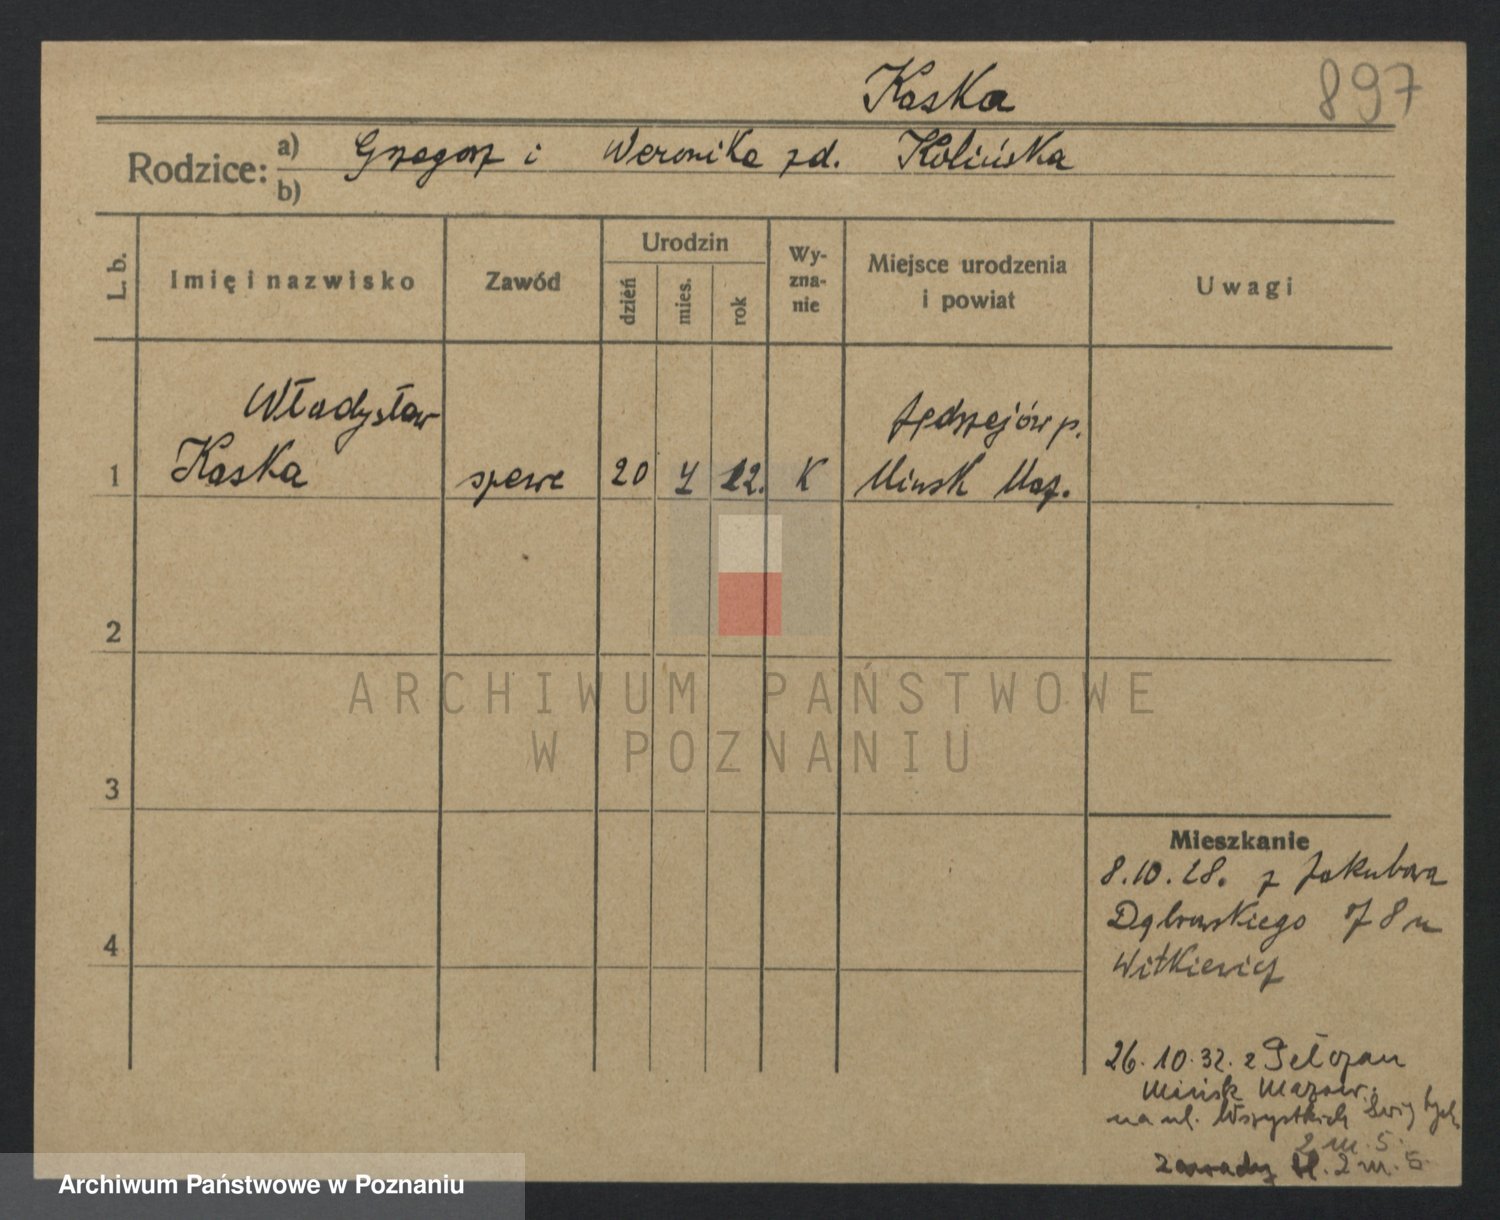 Kaska
897
Rodzice: a) Grzegorz i Weronika zd. Kolińska
b)
L. b.
Imię i nazwisko
Zawód
Urodzin
dzień
mies.
rok
Wy-
zna-
nie
Miejsce urodzenia
i powiat
Uwagi
Władysław
Jędrzejów p.
1 Kaska szewc 20 4 12. K Minsk Maz.
2
ARCHIWUM PAŃSTWOWE
W POZNANIU
3
Mieszkanie
8.10.28. z Jakubowa
Dąbrowskiego 8 u
4
Witkiewicz
26.10.32. z
Mińsk Mazow.
na ul. Wszystkich Świętych
2 m. 5.
Zawady 2 m. 5
Archiwum Państwowe w Poznaniu